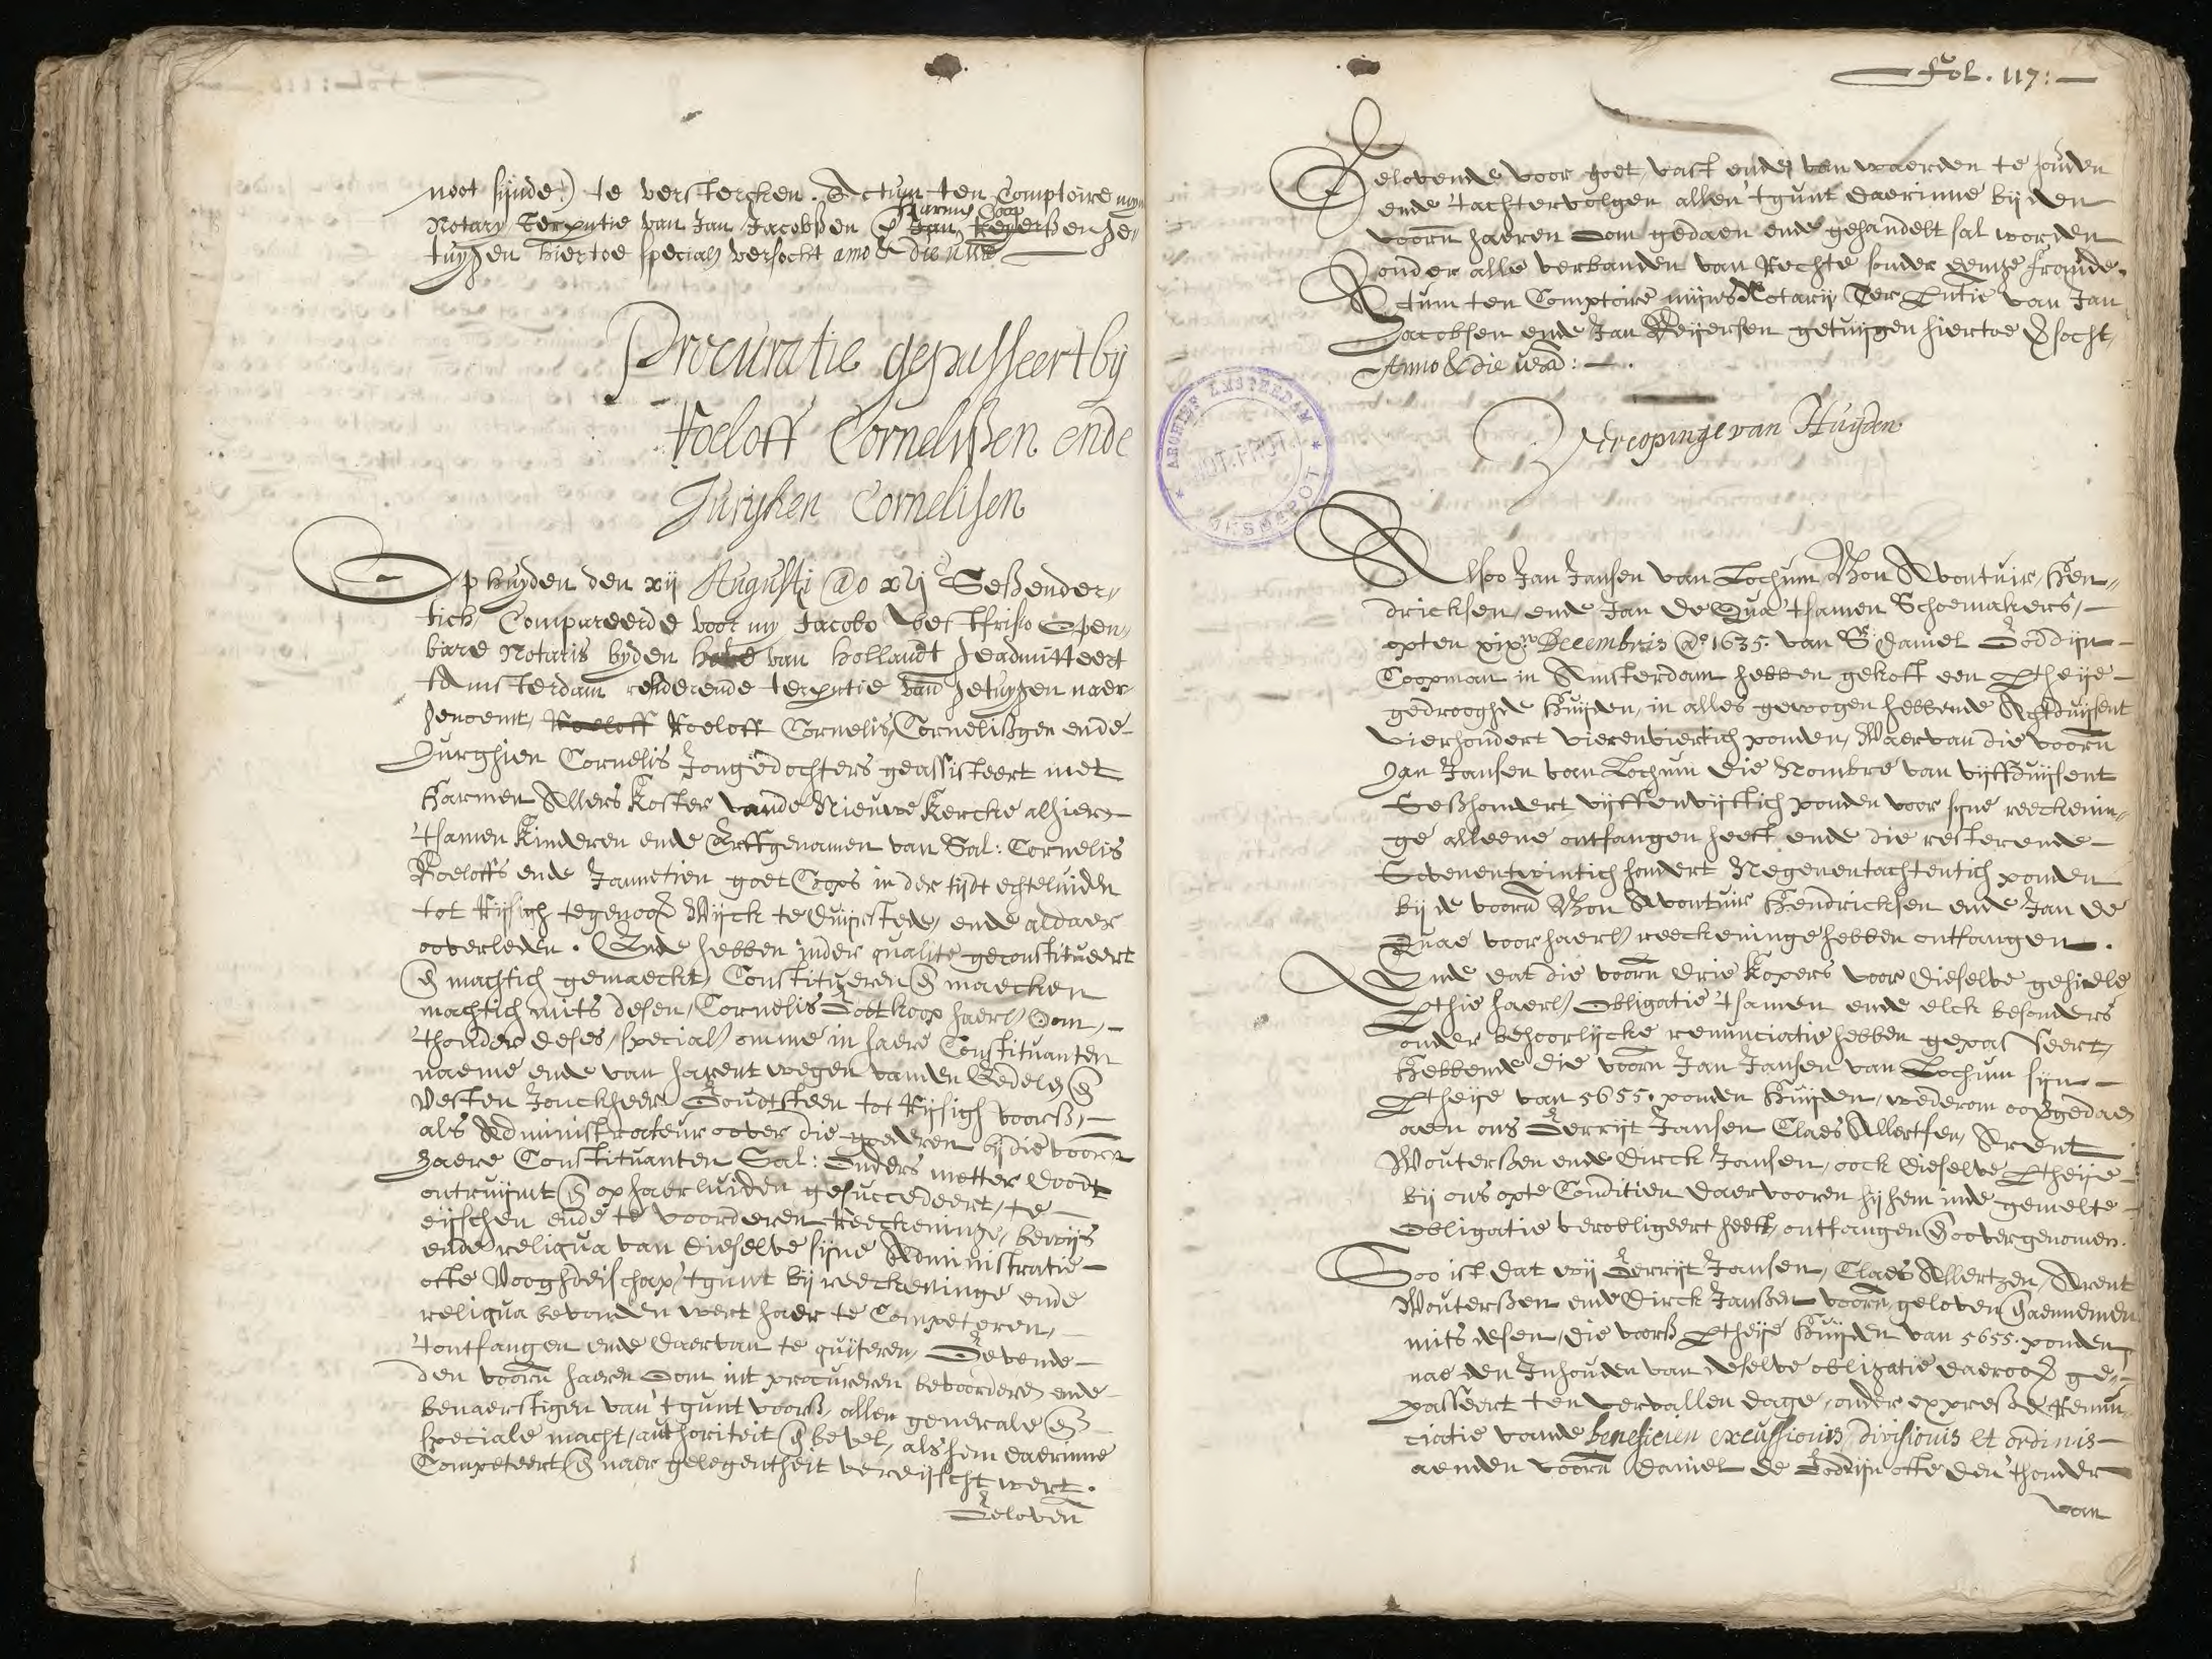 noot sijnde) te verstercken. Actum ten Comptoire mijn
Harmen Coop
Notarij Ter pntie van Jan Jacobssen Jan Reijerssen ge-
tuijgen hiertoe specialij versocht anno & die uts
Procuratie gepasseert bij
Roeloff Cornelissen ende
Jurijken Cornelisen
Op huijden den xij Augusti Ao xvj C Sessender-
tich, Compareerde voor mij Jacobo Westfrisio Open-
bare Notaris bijden Hove van Hollandt geadmitteert
tAmsterdam residerende ter pntie van getuijgen naer-
genoemt, Roeloff Roeloff Cornelis, Cornelissgen ende
Jurghien Cornelis Jongedochters geassisteert met
Harmen Allers Koster vande Nieuwe Kercke alhier
tsamen Kinderen ende Erffgenamen van Sal: Cornelis
Roeloffs ende Jannetien goet Coops in der tijdt echteluiden
tot Rijsigh tegenoor Wijck te Duijrstede, ende aldaer
ooverleden. Ende hebben inder qualite geconstitueert
en machtich gemaeckt, Constitueren en maecken
machtich mits desen, Cornelis Gotkoop haerl Oom,
thonder deses, special omme in haere Constituanten
naeme ende van harent wegen vanden Eedelen en
Vesten Jonckheer Goudtsteen tot Rijsigh voorss,
als Administrateur oover die goederen bij die voorn
haere Constituanten Sal: Ouders metter doodt
ontruijmt en op haerluiden gesuccedeert, te
eijsschen ende te voorderen Reeckeninge, bewijs
ende reliqua van dieselve sijne Administratie
ofte Vooghdeischap, tgunt bij reeckeninge ende
reliqua bevonden wert haer te Competeren,
tontfangen ende daervan te quiteren, Gevende
den voorn haeren Oom int procureren bevoorderen ende
benaerstigen van tgunt voorss, allen generale en
speciale macht, authoriteit en bevel, als hem daerinne
Competeert en naer gelegentheit vereijscht wert.
Geloven
Fol. 117:
Gelovende voor goet, vast ende van waerden te houden
ende tachtervolgen allen tgunt daerinne bij den
voorn haeren Oom gedaen ende gehandelt sal worden
Onder alle verbanden van Rechte sonder eenige fraude.
Actum ten Comptoire mijns Notarij Ter Pntie van Jan
Jacobsen ende Jan Reijersen getuijgen hiertoe versocht,
Anno & die utsa:
Vercopinge van Huijden
Alsoo Jan Jansen van Lochum, Bon Avontuir, Hen-
dricksen, ende Jan de Qua tsamen Schoemakers,
opten xix.en Decembris Ao 1635. van Sr Daniel Goddijn
Coopman in Amsterdam hebben gekoft een Ptheije
gedrooghde Huijden, in alles gewogen hebbende Achtduijsent
vierhondert vierenviertich ponden, Waervan die voorn
Jan Jansen van Lochum die Nombre van vijffduijsent
Sesshondert vijffenvijftich ponden voor sijne reeckenin-
ge alleene ontfangen heeft, ende die resterende
Sevenentwintich hondert Negenentachtentich ponden
bij de voorn Bon Avontuir Hendricksen ende Jan de
Quae voor haerl reeckeninge hebben ontfangen.
Ende dat die voorn drie Kopers voor dieselve geheele
Pthie haerl Obligatie tsamen ende elck besonders
onder behoorlijcke renunciatie hebben gepasseert,
Hebbende die voorn Jan Jansen van Lochum sijn
Ptheije van 5655. ponden Huijden, wederom oovergedaen
aen ons Gerrijt Jansen Claes Allertsen, Arent
Wouterssen ende Dirck Jansen, oock dieselve Ptheije
bij ons opte Conditien daervooren hij hem inde gemelte
Obligatie verobligeert heeft, ontfangen en oovergenomen.
Soo ist dat wij Gerrijt Jansen, Claes Allertzen, Arent
Wouterssen ende Dirck Janssen voorn, geloven en aennemen
mits desen, die voorss Ptheije Huijden van 5655. ponden
nae den Inhouden van deselve obligatie daeroover ge-
passeert ten vervallen dage, onder expresse Renun-
ciatie vande beneficien excussionis, divisionis et ordinis
aenden voorn Daniel de Godijn ofte den thonder
van
ARCHIEF AMSTERDAM
NOT. PROT.